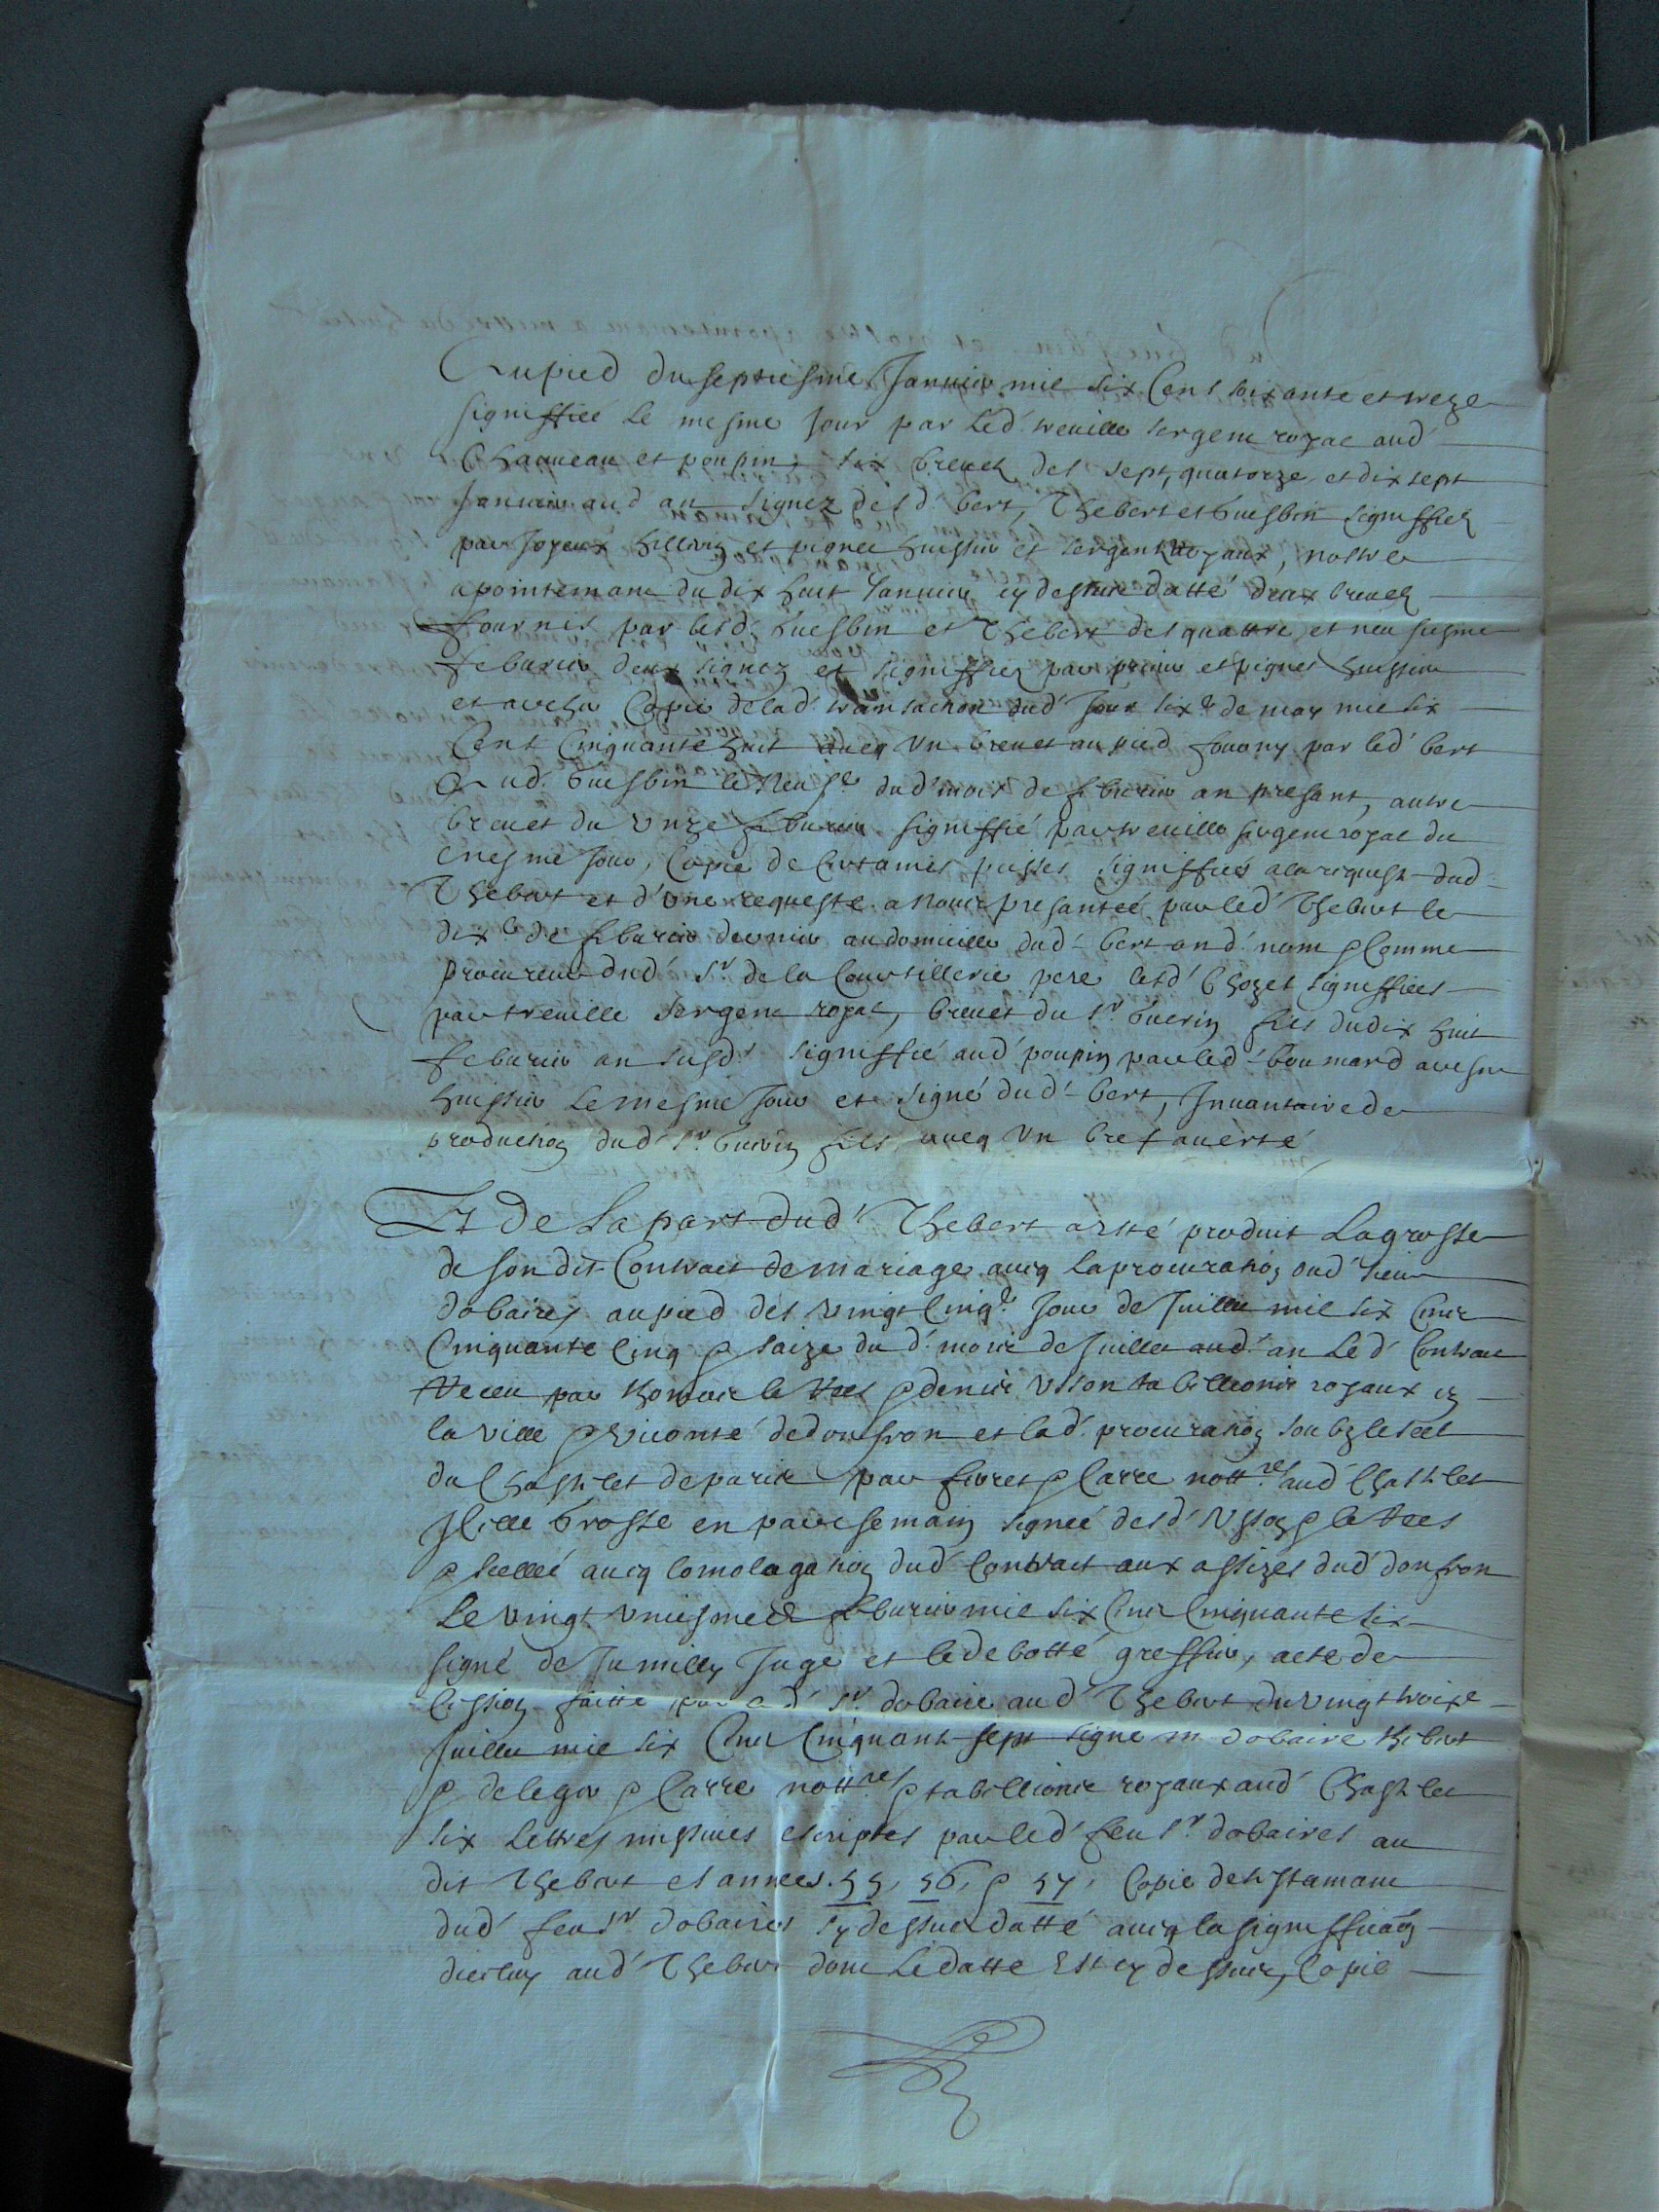 Au pied du septiesme Januier mil six Cent soixante et treze
signiffiee le mesme jour par led' treuille sergent royal aud'
Chauueau et poupin, six breuetz des sept, quatorze et dix sept
Januier aud' an signez desd' bert, Thebert et Guesbin signiffiez
par Joyeux hellerin et pignel huissier et sergentz royaux, nostre
apointemant du dix huit Januier cy dessus datté deux breuetz
fournis par lesd. Guesbin et Thebert des quattre et neufiesme
feburier deux signez et signiffiez par et pignel huissier
et autre Copie de lad' transaction dud' jour six.e de may mil six
Cent Cinquante huit aueq Vn breuet au pied fourny par led' bert
Aud. Guesbin le neuf.e dud' mois de feburier an presant, autre
breuet du Unze feburier signiffié par treuille sergent royal du
mesme jour, Copie de Certaines piesses signiffiées a la requeste dud.
Thebert et d'une requeste a Nous presantée par led' Thebert le
dix.e de feburier dernier au domicille dud' bert aud' nom & Comme
procureur dud' Sr de la Courtillerie pere lesd' Chozes signiffiees
par treuille sergent royal, breuet du Sr Guerin fils du dix huit
feburier an susd' signiffié aud' poupin par led' boumard
huissier le mesme jour et signé dud' bert, Inuantaire de
production dud' Sr Guerin fils, aueq Vn bref auerté
Et De La part dud' Thebert a esté produit La grosse
de son dit Contract de mariage aueq la procuration dud' sieur
dobaires au pied des vingt Cinq.e jour de Juillet mil six Cens
Cinquante Cinq & saize du d' mois de Juillet aud' an Led' Contract
Receu par Thomas le Rees & denis Vsson tabellions royaux en
la ville & vicomté de donfron et lad' procuration soubz le seel
du Chastelet de paris par fieres & Carre nott.res aud' Chastelet
Ille Grosse en parchemain signée desd' Vsson & le Rees
& sellée aueq lomologation dud' Contract aux assizes dud' donfron
Le vingt vniesme de feburier mil six Cens Cinquante six
signé de Jumilly Juge et ledebotté greffier, acte de
Cession faitte par led' Sr dobaire aud' Thebert du vingt troix.e
Juillet mil six Cens Cinquante sept signe m dobaire thebert
& delegu & Carre nott.res & tabellions royaux aud' Chastelet
six Lettres missiues escriptes par led' feu Sr dobaires au
dit Thebert es annees. 55, 56, & 57, Copie de testamant
dud' feu Sr dobaires sy dessus datté aueq la signiffication
dicelluy aud' Thebert dont Le datte Est cy dessus, Copie